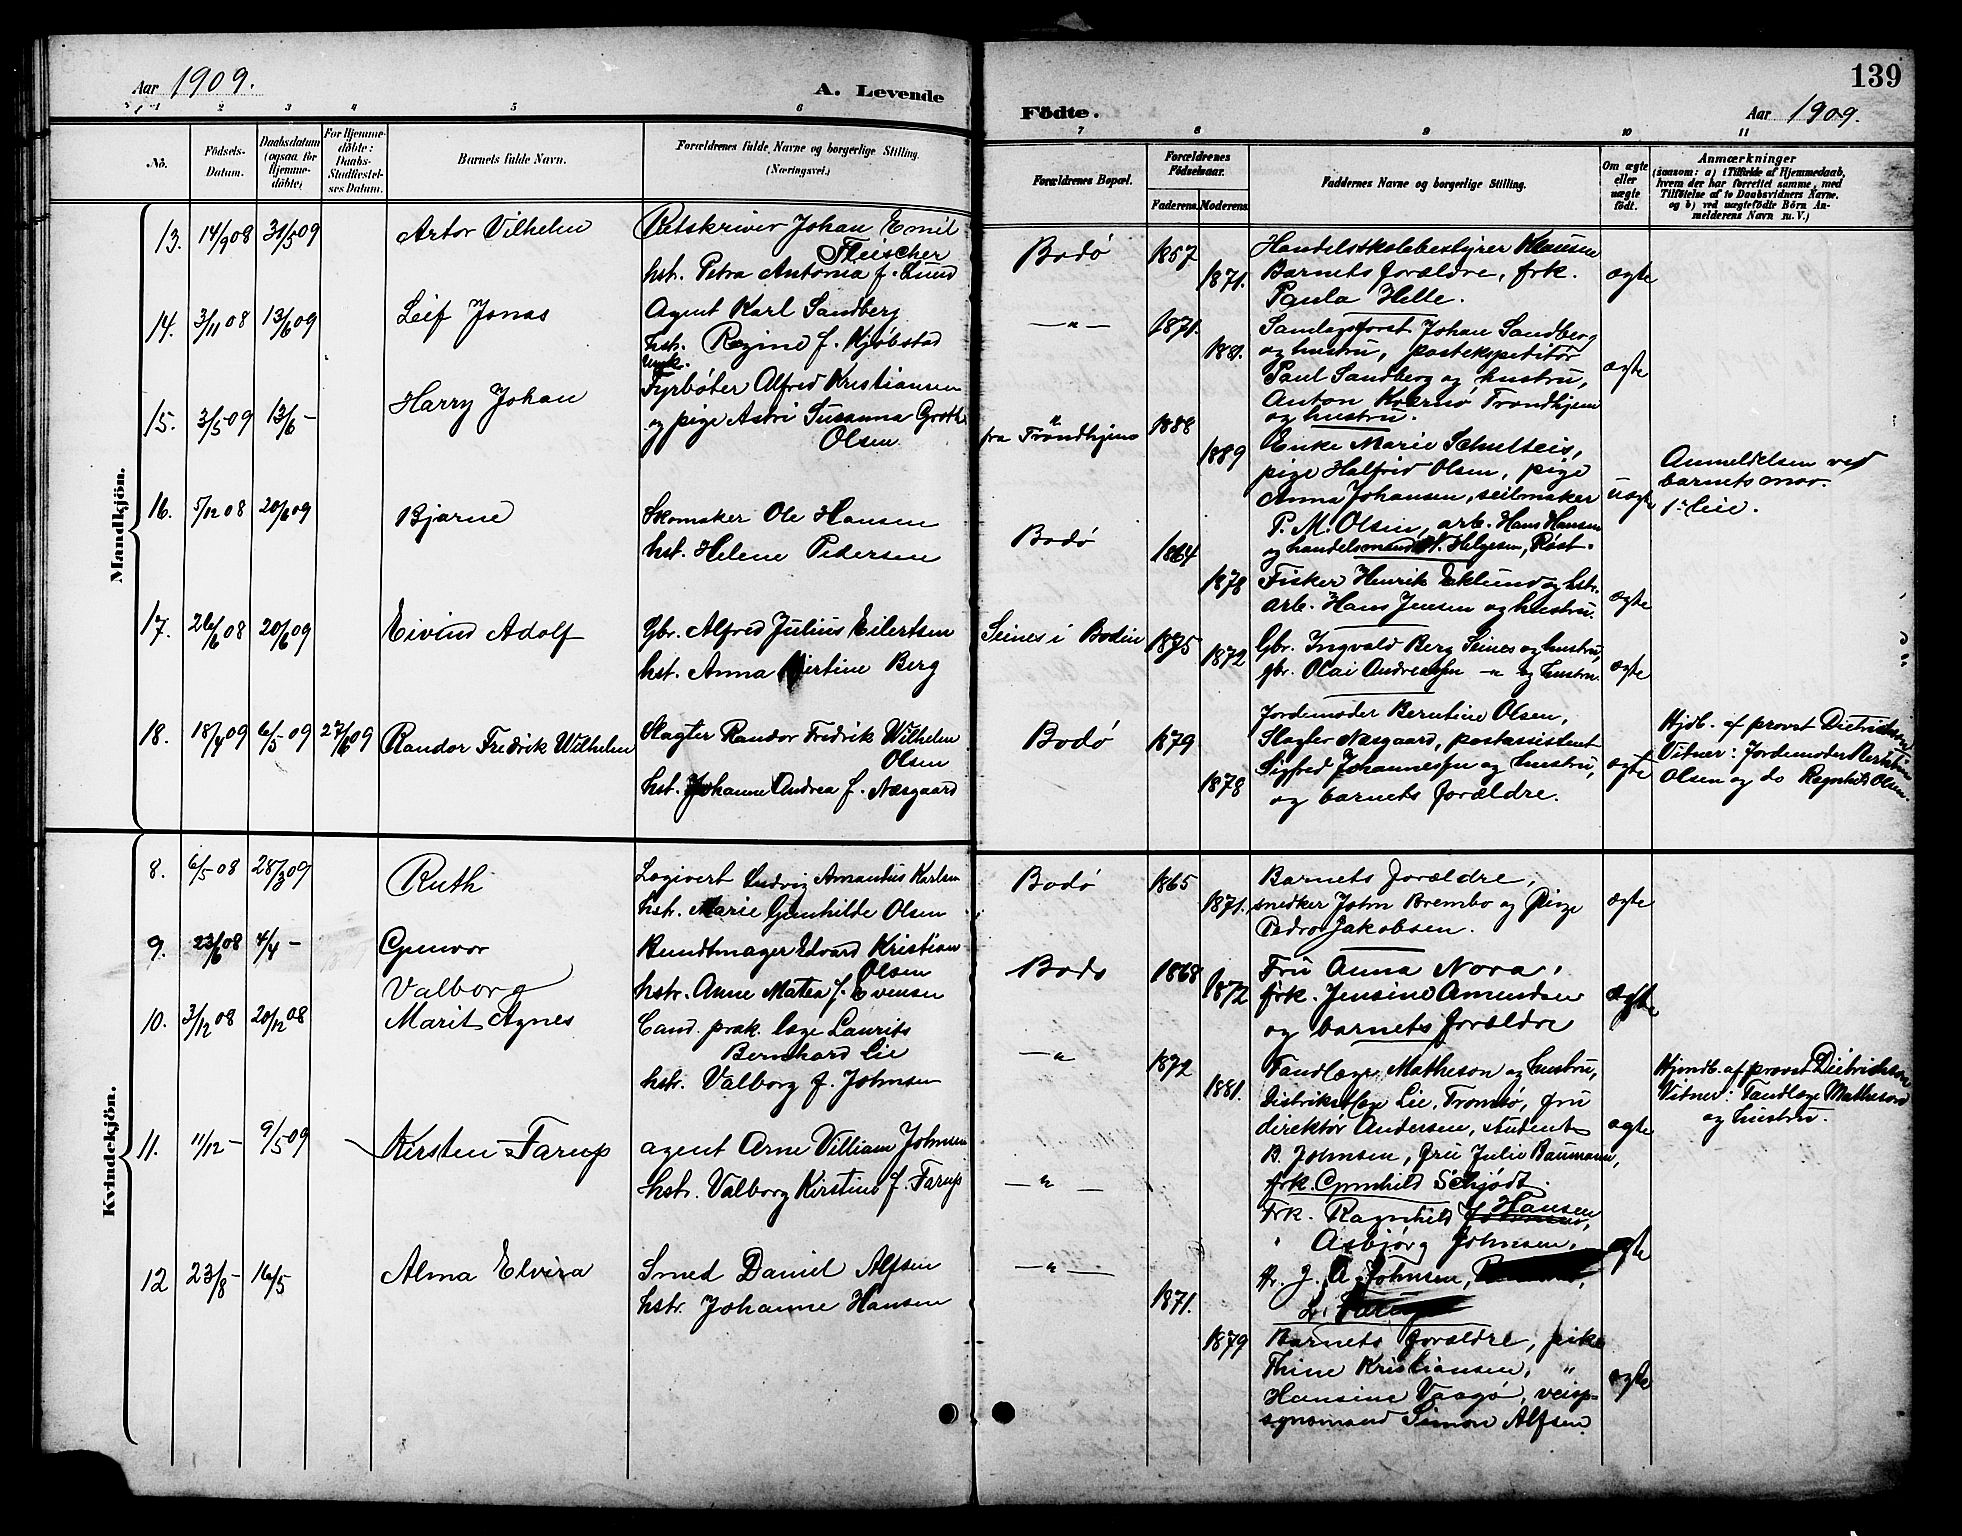 139
Aar 1909.
A. Levende
Födte.
Aar 1909.
1 2 3 4 5 6 7 8 9 10 11
No.
Födsels-
Datum.
Daabsdatum
(ogsaa for
Hjemme-
döbte)
For Hjemme-
döbte:
Daabs-
Stadfæstel-
ses Datum.
Barnets fulde Navn.
Forældrenes fulde Navne og borgerlige Stilling.
(Næringsvei.)
Forældrenes Bopæl.
Forældrenes
Födselsaar.
Faderens. Moderens.
Faddernes Navne og borgerlige Stilling.
Om ægte
eller
uægte
födt.
Anmærkninger
(saasom: a) i Tilfælde af Hjemmedaab,
hvem der har forrettet samme, med
Tilföielse af to Daabsvidners Navne.
og b) ved uægtefödte Börn An-
melderens Navn m. V.)
Mandkjön.
13. 14/9 08 31/5 09
Artor Vilhelm
Retskriver Johan Emil
Fleischer
hst. Petra Antonia f. Lund
Bodø
1867
1871.
Handelsskolebestyrer Klausen
Barnets forældre, frk.
Paula Helle.
ægte
14. 3/11 08 13/6 09
Leif Jonas
Agent Karl Sandberg
hst. Regine f. Kjøbstad
—"—
1871.
1881.
Samlagsforst Johan Sandberg
og hustru, postekspeditør
Paul Sandberg og hustru,
Anton Trondhjem
og hustru.
ægte
15. 3/5 09 13/6 -
Harry Johan
Ungk.
Fyrbøter Alfred Kristiansen
og pige Astri Susanna Groth
Olsen
"
fra Trondhjem
1888
1889
Enke Marie Schulteis,
pige Halfrid Olsen, pige
Anna Johansen, seilmaker
P. M. Olsen, arb. Hans Hansen
og handelsmand N. Helgesen, Røst.
uægte
Anmeldelsen ved
barnets mor.
16. 5/12 08 20/6 09
Bjarne
Skomaker Ole Hansen
hst. Helene Pedersen
Bodø
1864
1878
Fisker Henrik Eklund og hstr.
arb. Hans Jensen og hustru.
ægte
17. 26/6 08 20/6 09
Eivind Adolf
Gbr. Alfred Julius Eilertsen
hst. Anna Kirstine Berg
Seines i Bodin
1875
1872
Gbr. Ingvald Berg Seines og hustru,
gbr. Olai Andreassen —"— og hustru.
ægte
18. 18/4 09 6/5 09 27/6 09
Randor Fredrik Wilhelm
Slagter Randor Fredrik Wilhelm
Olsen
hst. Johanne Andrea f. Næsgaard
Bodø
1879
1878
Jordemoder Berntine Olsen,
Slagter Næsgaard, postassistent
Sigfred Johannessen og hustru,
og barnets forældre.
ægte
Hjdb. af provst Dietrichson
Vitner: Jordemoder Berntine
Olsen og do Ragnhild Olsen.
Kvindekjön.
8. 6/5 08 28/3 09
Ruth
Logivert Ludvig Amandus Karlsen
hst. Marie Gunhilde Olsen
Bodø
1865
1871.
Barnets forældre,
snedker John Brembo og Pige
Pedra Jakobsen.
ægte
9. 23/6 08 4/4 -
Gunvor
Valborg
Bundtmager Edvard Kristian
Olsen
hstr. Anne Matea f. Evensen
Bodø
1868
1872
Fru Anna Nora,
frk. Jensine Amundsen
og barnets forældre
ægte
10. 3/12 08 20/12 08
Marit Agnes
Cand. prak. læge Laurits
Bernhard Lie
hstr. Valborg f. Johnsen
—"
1872
1881.
Tandlæge Matheson og hustru,
Distrikslæge Lie, Tromsø, fru
direktør Andersen, student
B. Johnsen, fru Julie Baumann,
frk. Gunhild Schjødt.
ægte
Hjmdb. af provst Dietrichson
Vitner: Tandlæge Matheson
og hustru.
11. 11/12 - 9/5 09
Kirsten Farup
agent Arne Villiam Johnsen
hstr. Valborg Kirstine f. Farup
—"—
Frk. Ragnhild Hansen
" Asbjørg Johnsen,
Hr. J. A. Johnsen,
ægte
12 23/8 - 16/5
Alma Elvira
Smed Daniel Alfsen
hstr. Johanne Hansen
—"—
1871.
1879
Barnets forældre, pike
Thine Kristiansen, "
Hansine Vaagø, veiop-
synsmand Simon Alfsen.
ægte